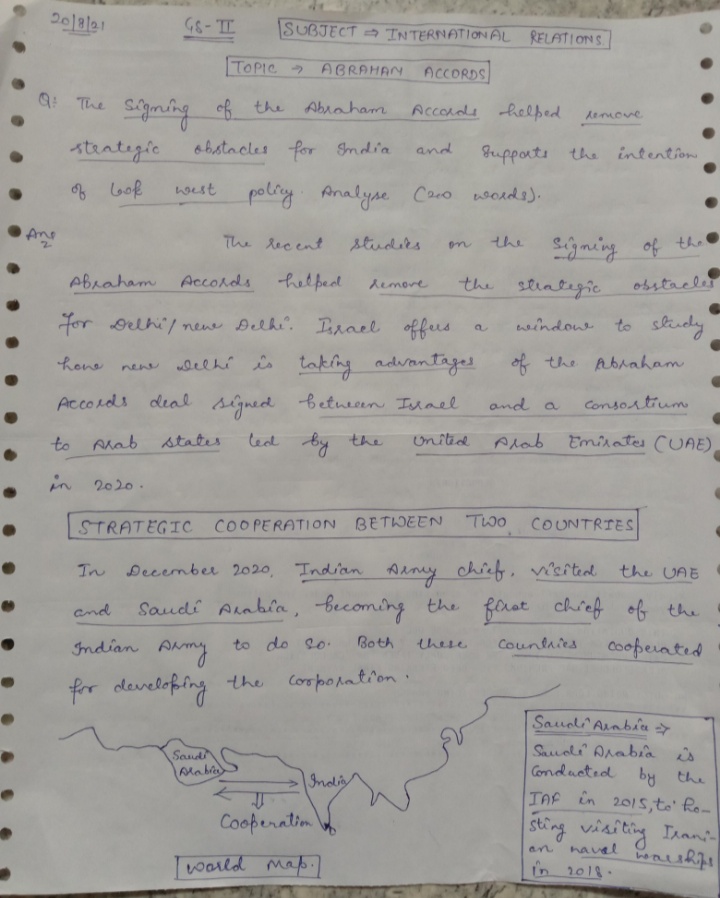 20/8/21 GS-II SUBJECT ⇒ INTERNATIONAL RELATIONS.
TOPIC → ABRAHAM ACCORDS
Q: The Signing of the Abraham Accords helped remove
strategic obstacles for India and Supports the intention
of look west policy. Analyse (200 words).
Ans
2
The recent studies on the Signing of the
Abraham Accords helped remove the strategic obstacles
for Delhi/new Delhi. Israel offers a window to study
how new Delhi is taking advantages of the Abraham
Accords deal signed between Israel and a consortium
to Arab states led by the United Arab Emirates (UAE)
in 2020.
STRATEGIC COOPERATION BETWEEN TWO COUNTRIES
In December 2020, Indian Army chief, visited the UAE
and Saudi Arabia, becoming the first chief of the
Indian Army to do so. Both these countries cooperated
for developing the corporation.
Saudi
Arabia
India
Cooperation
World Map.
Saudi Arabia ⇒
Saudi Arabia is
conducted by the
IAF in 2015, to ho-
sting visiting Irani-
an naval warships
in 2018.